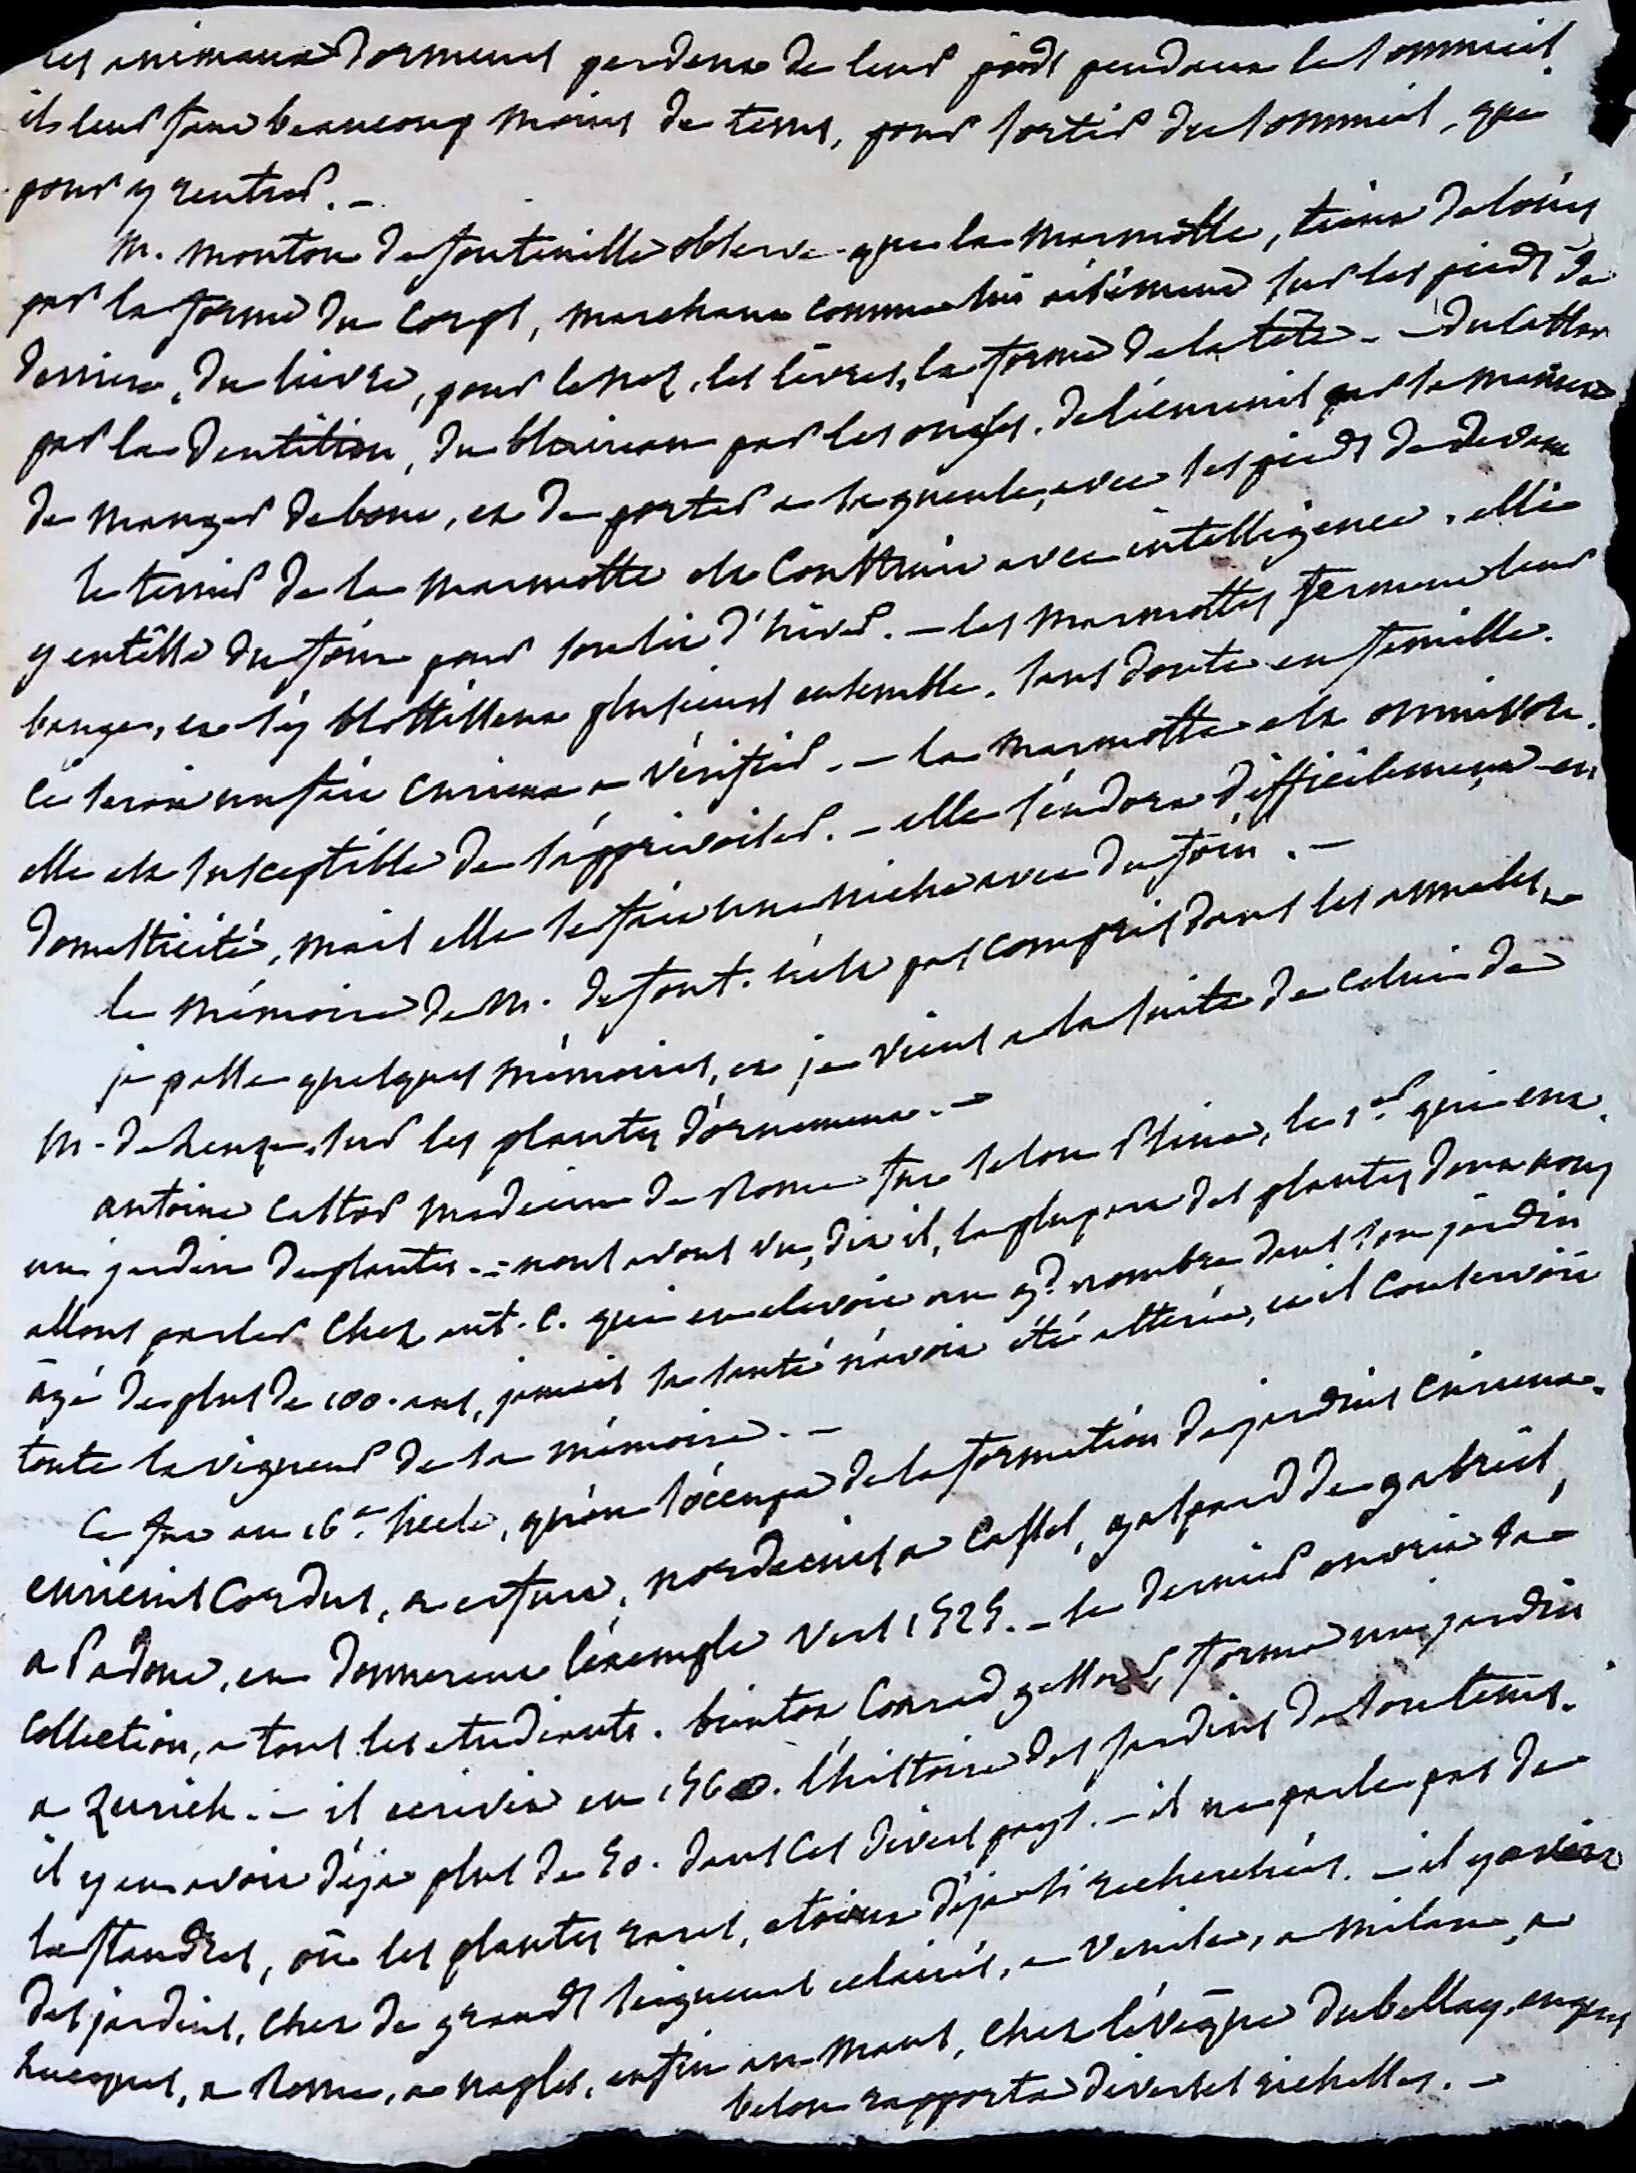 ces animaux dormeurs perdent de leur poids pendant le sommeil.
il leur faut beaucoup moins de tems, pour sortir du sommeil, que
pour y rentrer. —
M. mouton de fontenille observe que la marmotte, tient de l'ours
par la forme du corps, marchant comme lui aisément sur les pieds de
derrière, du lièvre, pour le nez, les lèvres, la forme de la tête. — du castor
par la dentition, du blaireau par les ongles. de l'écureuil par la manière
de manger debout, et de porter a sa gueule, avec ses pieds de devant
le terrier de la marmotte est construit avec intelligence. elle
y entasse du foin pour son lit d'hiver. — les marmottes ferment leur
bauge, et s'y blottissent plusieurs ensemble. sans doute en famille.
ce serait un fait curieux a vérifier. — la marmotte est omnivore.
elle est susceptible de s'apprivoiser. — elle s'endort difficilement en
domesticité, mais elle se fait une niche avec du foin. —
le mémoire de M. de font. n'est pas compris dans les annales. —
je passe quelques mémoires, et je viens a la suite de celui de
M. de sur les plantes d'ornement. —
antoine castor medecin de Rome fut selon Pline, le 1er. qui eut
un jardin de plantes. — nous avons vu, dit il, la plupart des plantes dont nous
allons parler chez ant. C. qui en elevoit un gd. nombre dans son jardin
âgé de plus de 100. ans, jamais sa santé n'avoit été altérée, et il conservoit
toute la vigueur de sa mémoire. —
Ce fut au 16e. siecle, qu'on s'occupa de la formation de jardins curieux.
euricius Cordus, a erfurt, nordecius a Cassel, gaspard de gabriel,
a Padoue, en donnerent l'exemple vers 1525. — le dernier ouvrit sa
collection, a tous les etudiants. bientot Conrad gessner, forma un jardin
a Zurich. — il ecrivit en 1560. l'histoire des jardins de son tems.
il y en avoit déja plus de 50. dans ces divers pays. — il ne parle pas de
la flandres, où les plantes rares, etoient déja si recherchées. — il y avoit
des jardins, chez de grands seigneurs eclairés, a Venise, a milan, a
Lucques, a Rome, a naples, enfin au mans, chez l'évêque du bellay. auquel
belon rapporta diverses richesses. —